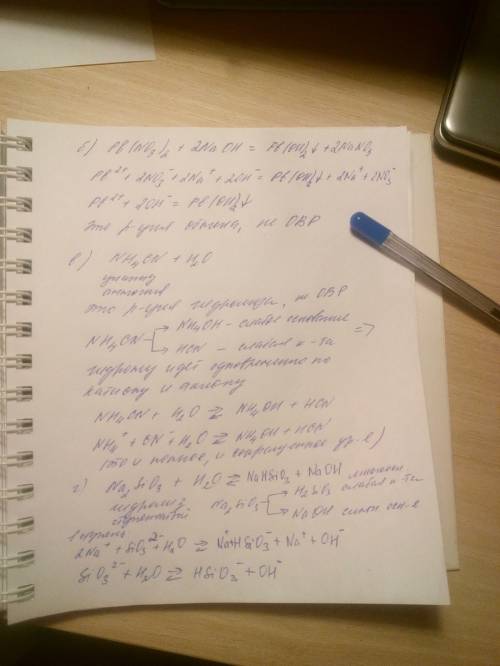 б) Pb(NO₃)₂ + 2NaOH = Pb(OH)₂↓ + 2NaNO₃
Pb²⁺ + 2NO₃⁻ + 2Na⁺ + 2OH⁻ = Pb(OH)₂↓ + 2Na⁺ + 2NO₃⁻
Pb²⁺ + 2OH⁻ = Pb(OH)₂↓
это р-ция обмена, не ОВР
в) NH₄CN + H₂O
цианид
аммония
это р-ция гидролиза, не ОВР
NH₄OH - слабое основание
NH₄CN =>
HCN - слабая к-та
гидролиз идет одновременно по
катиону и аниону
NH₄CN + H₂O ⇄ NH₄OH + HCN
NH₄⁺ + CN⁻ + H₂O ⇄ NH₄OH + HCN
(это и полное, и сокращенное ур-е)
г) Na₂SiO₃ + H₂O ⇄ NaHSiO₃ + NaOH
гидролиз Na₂SiO₃ H₂SiO₃ слабая к-та
ступенчатый NaOH сильн осн-е
2Na⁺ + SiO₃²⁻ + H₂O ⇄ Na⁺ + HSiO₃⁻ + Na⁺ + OH⁻
SiO₃²⁻ + H₂O ⇄ HSiO₃⁻ + OH⁻